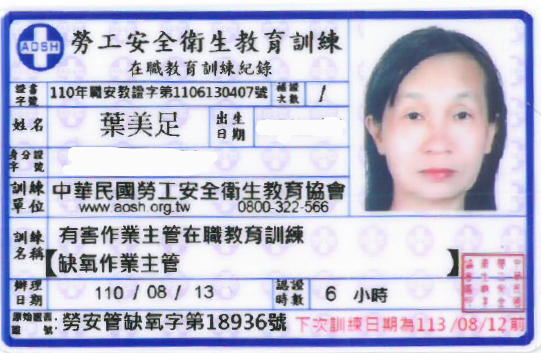 AOSH
勞工安全衛生教育訓練
在職教育訓練紀錄
證書字號 110年職安教證字第1106130407號 補證次數 /
姓名 葉美足 出生日期
身分證字號
訓練單位 中華民國勞工安全衛生教育協會
www.aosh.org.tw 0800-322-566
訓練名稱 有害作業主管在職教育訓練
【缺氧作業主管】
辦理日期 110 / 08 / 13 認證時數 6 小時
勞安管缺氧字第18936號 下次訓練日期為113 /08/12前